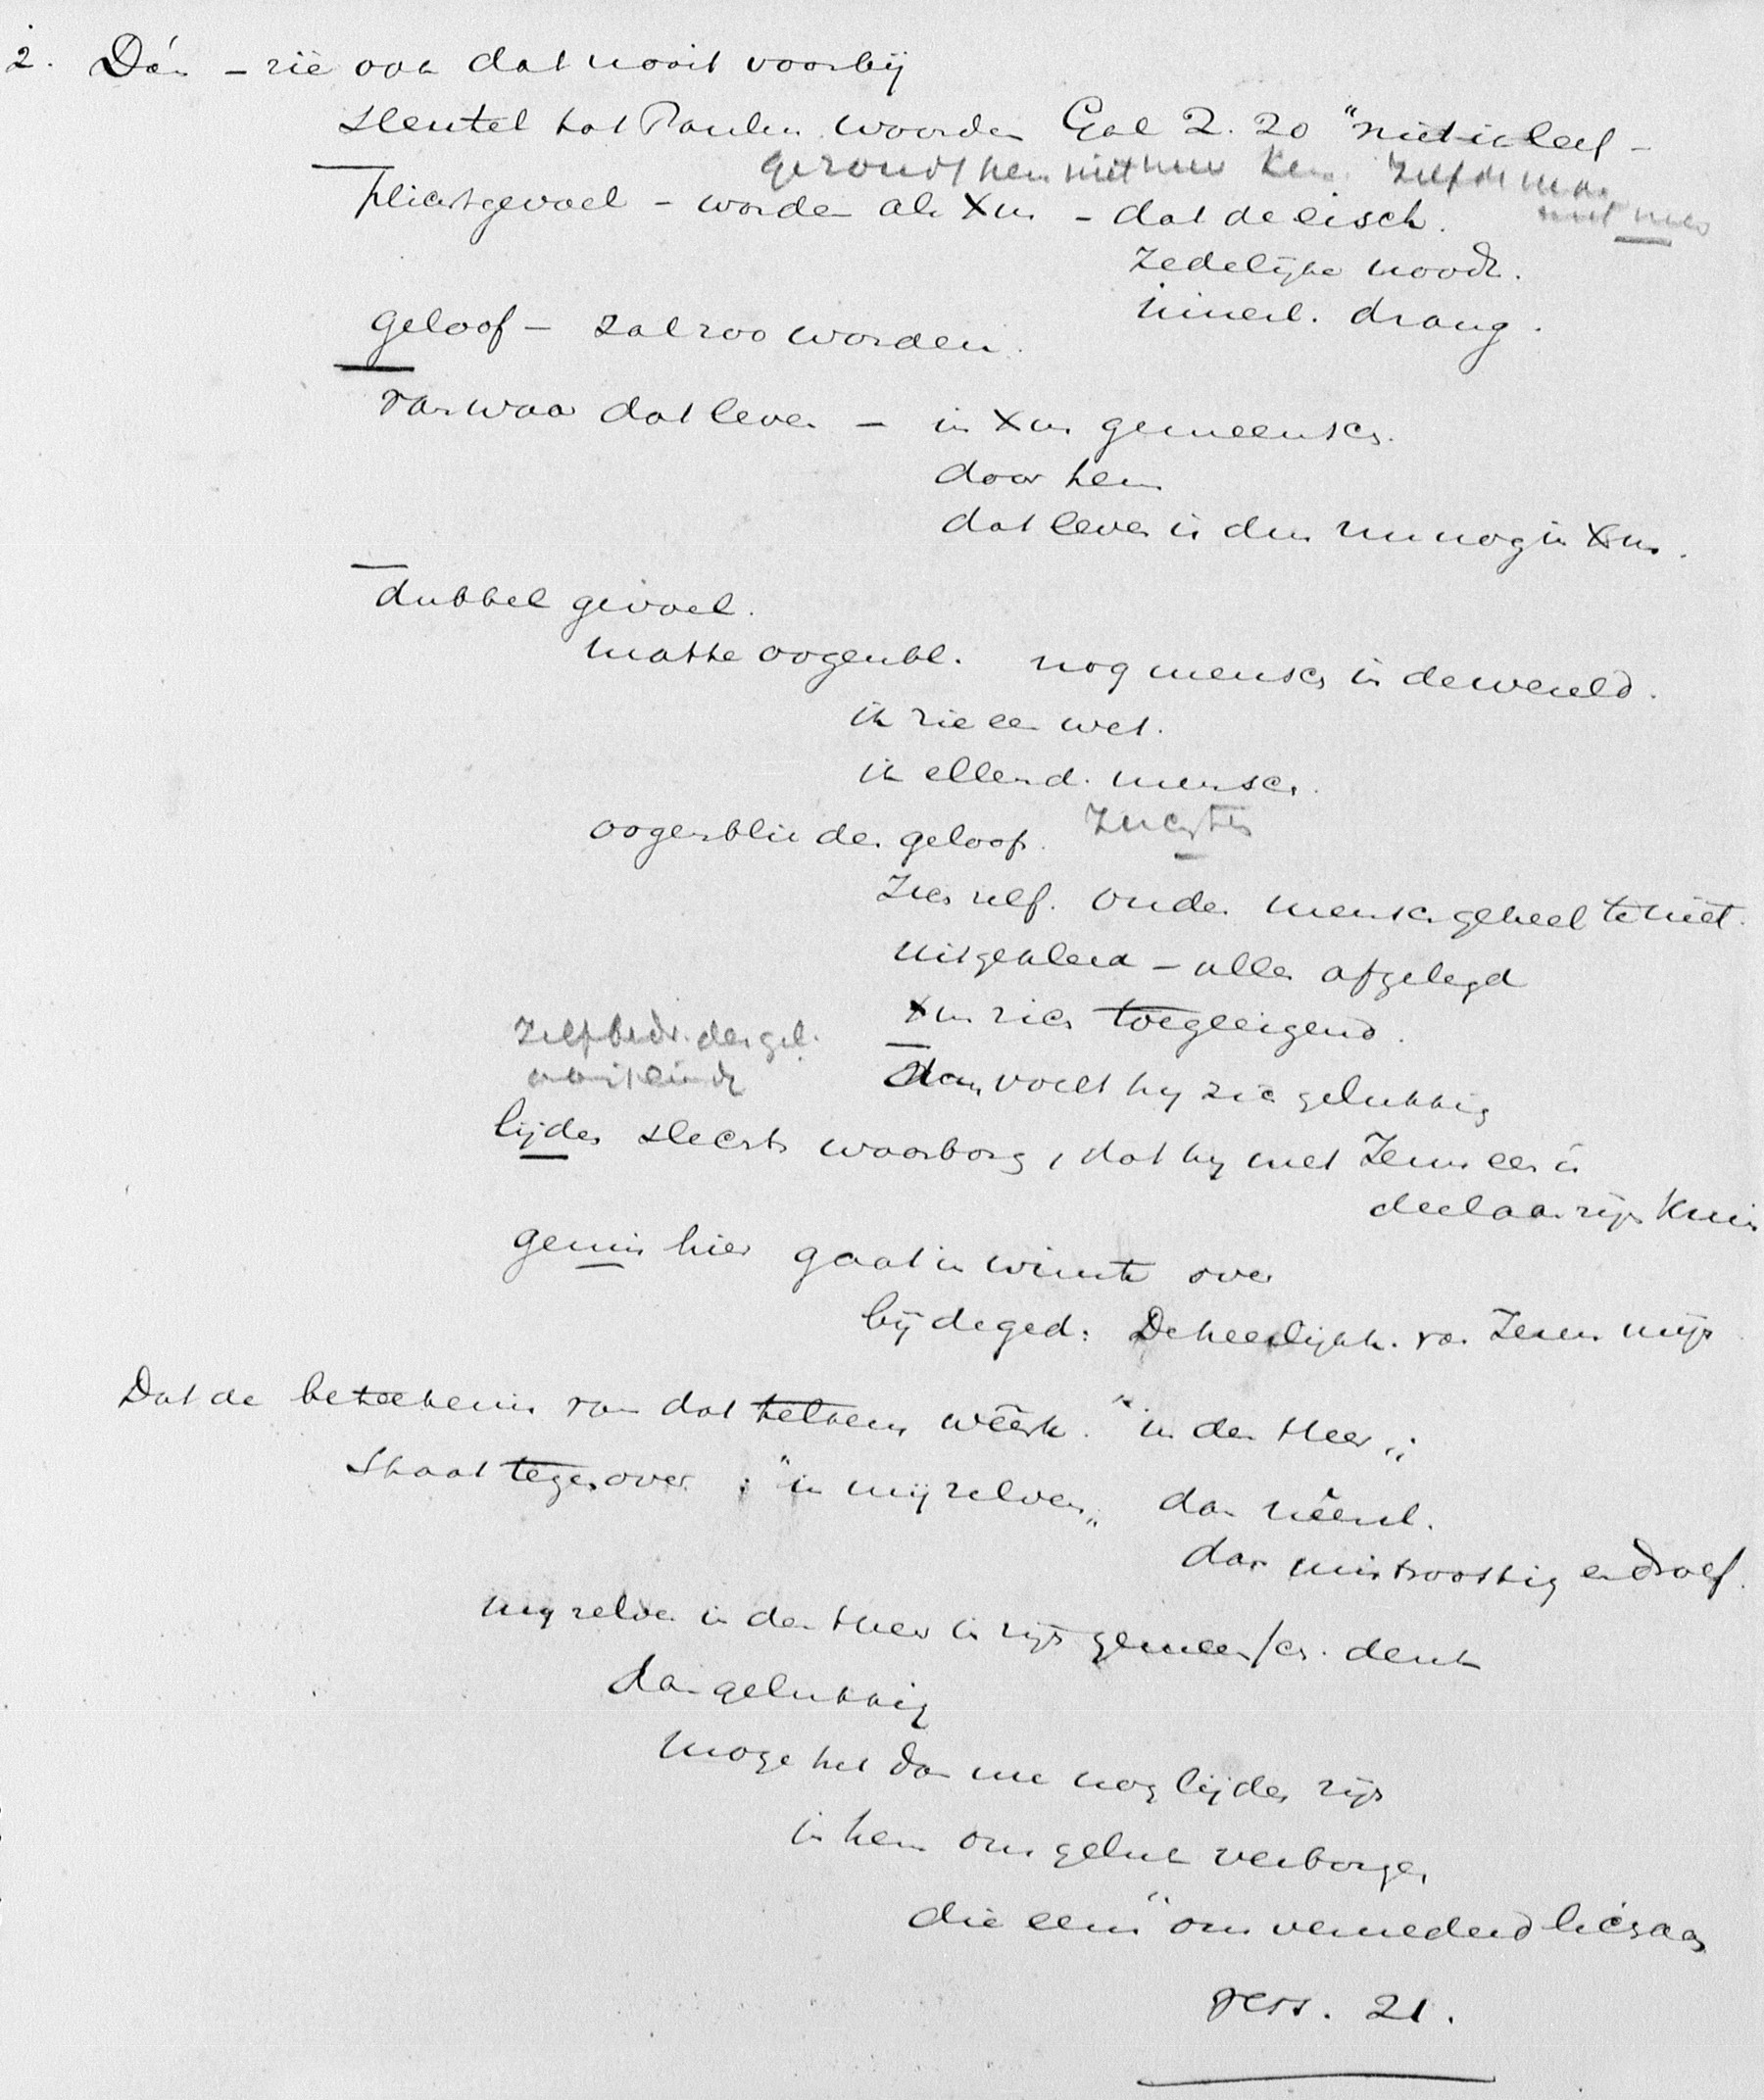 2. Dán – zie ook dat nooit voorbij
sleutel tot Paulus woorden Gal 2. 20 "niet ik leef –
gezondt hem niet meer ken. Zelfde man
niet meer
plichtgevoel – worden als Xus – dat de eisch.
zedelijke noodz.
innerl. drang.
geloof – zal zoo worden.
van waar dat leven – in Xus gemeensch.
door hem
dat leven is dus nu nog in Xus.
dubbel gevoel.
matte oogenbl. nog mensch in de wereld.
ik zie een wet.
ik ellend. mensch.
oogenblik des geloofs. zuchten
Zich zelf. oude mensch geheel te niet.
uitgekleed – alles afgelegd
Xus zich toegeeigend.
dan voelt hij zich gelukkig
Zelfbedr. des gel.
lijden slechts waarborg, dat hij met Jezus een is
deelaan zijn kruis
gemis hier gaat in winste over
bij de ged: De heerlijkh. van Jezus mijn
Dat de beteekenis van dat "in den Heer";
staat tegenover : "in mij zelven" dan
dan mistroostig en droef.
mij zelven in den Heer in zijn gemeensch. denk
dan gelukkig
moge het dan nu nog lijden zijn
in hem ons geluk verborgen
die eens "ons vernederd lichaam
vers. 21.